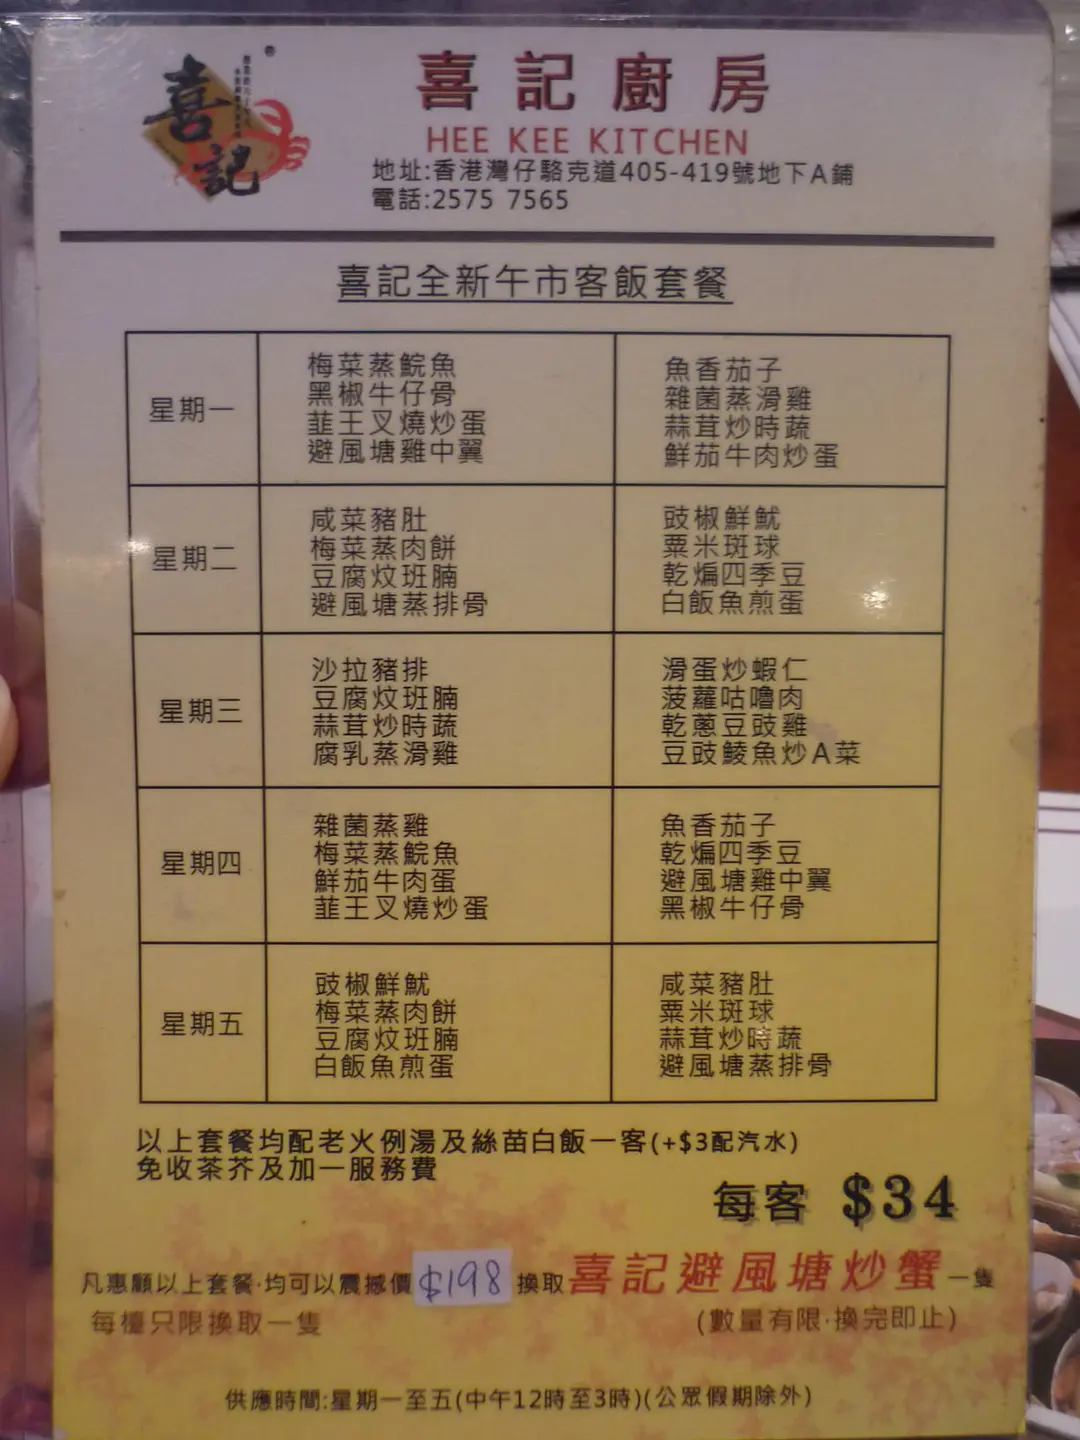 喜記
喜記廚房
HEE KEE KITCHEN
地址:香港灣仔駱克道405-419號地下A鋪
電話:2575 7565
喜記全新午市客飯套餐
星期一
梅菜蒸鯇魚
黑椒牛仔骨
韮王叉燒炒蛋
避風塘雞中翼
魚香茄子
雜菌蒸滑雞
蒜茸炒時蔬
鮮茄牛肉炒蛋
星期二
咸菜豬肚
梅菜蒸肉餅
豆腐炆班腩
避風塘蒸排骨
豉椒鮮魷
粟米斑球
乾煸四季豆
白飯魚煎蛋
星期三
沙拉豬排
豆腐炆班腩
蒜茸炒時蔬
腐乳蒸滑雞
滑蛋炒蝦仁
菠蘿咕嚕肉
乾蔥豆豉雞
豆豉鯪魚炒A菜
星期四
雜菌蒸雞
梅菜蒸鯇魚
鮮茄牛肉蛋
韮王叉燒炒蛋
魚香茄子
乾煸四季豆
避風塘雞中翼
黑椒牛仔骨
星期五
豉椒鮮魷
梅菜蒸肉餅
豆腐炆班腩
白飯魚煎蛋
咸菜豬肚
粟米斑球
蒜茸炒時蔬
避風塘蒸排骨
以上套餐均配老火例湯及絲苗白飯一客(+$3配汽水)
免收茶芥及加一服務費
每客 $34
凡惠顧以上套餐·均可以震撼價$198換取喜記避風塘炒蟹一隻
每檯只限換取一隻
(數量有限·換完即止)
供應時間:星期一至五(中午12時至3時)(公眾假期除外)